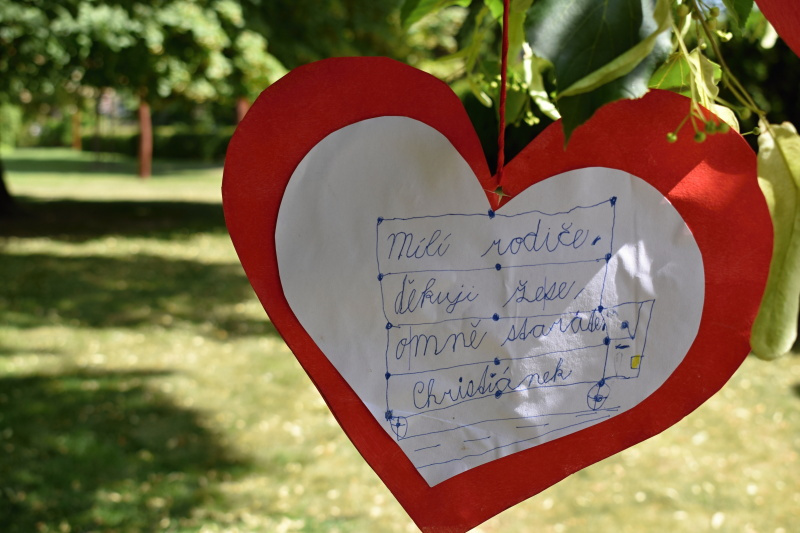 Milí rodiče.
děkuji žese
omně starate.
Christiánek